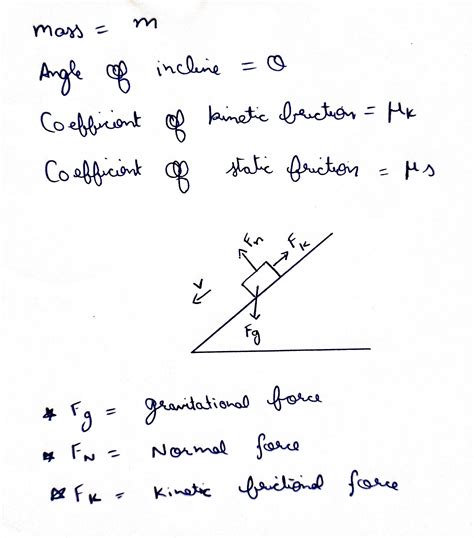 mass = m
Angle of incline = θ
Coefficient of kinetic friction = μK
Coefficient of static friction = μs
Fn
FK
V
Fg
* Fg = gravitational force
* FN = Normal force
* FK = kinetic frictional force